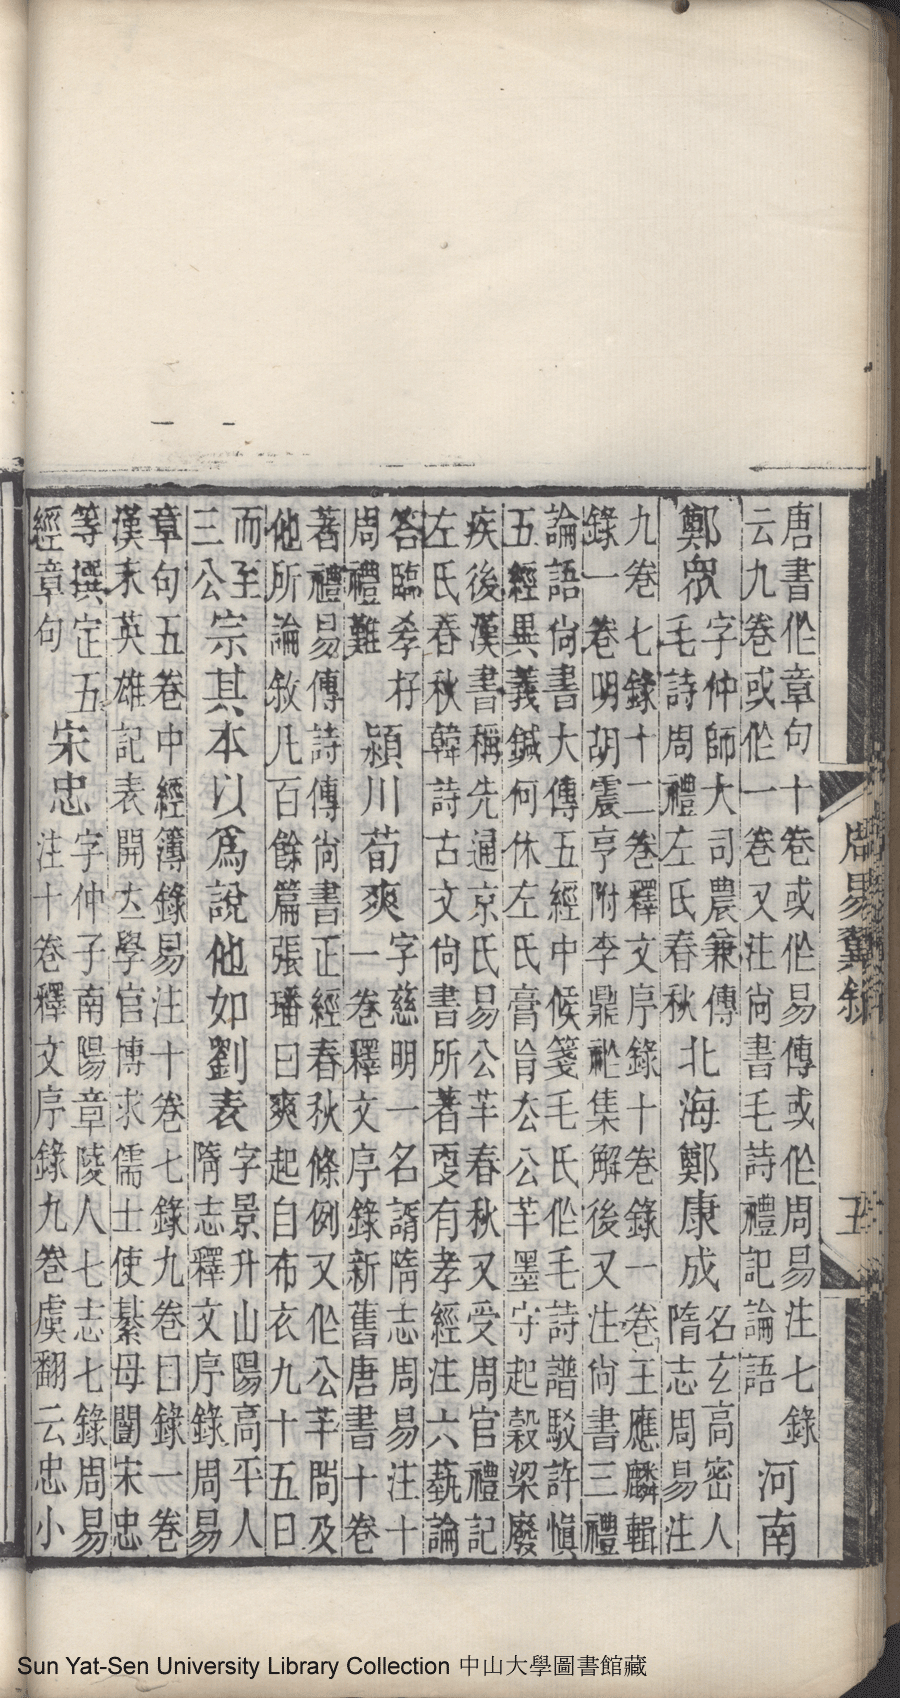 唐書作章句十卷或作易傳或作周易注七錄
云九卷或作一卷又注尚書毛詩禮記論語
河南
鄭衆
字仲師大司農兼傳
毛詩周禮左氏春秋
北海鄭康成
名玄高密人
隋志周易注
九卷七錄十二卷釋文序錄十卷錄一卷王應麟輯
錄一卷明胡震亨附李鼎祚集解後又注尚書三禮
論語尚書大傳五經中候箋毛氏作毛詩譜駁許愼
五經異義鍼何休左氏膏肓去公羊墨守起穀梁廢
疾後漢書稱先通京氏易公羊春秋又受周官禮記
左氏春秋韓詩古文尚書所著更有孝經注六蓺論
答臨孝存
周禮難
潁川荀爽
字慈明一名諝隋志周易注十
一卷釋文序錄新舊唐書十卷
著禮易傳詩傳尚書正經春秋條例又作公羊問及
他所論敘凡百餘篇張璠曰爽起自布衣九十五日
而至
三公
宗其本以爲說他如劉表
字景升山陽高平人
隋志釋文序錄周易
章句五卷中經簿錄易注十卷七錄九卷曰錄一卷
漢末英雄記表開立學官博求儒士使綦母闓宋忠
等撰定五
經章句
宋忠
字仲子南陽章陵人七志七錄周易
注十卷釋文序錄九卷虞翻云忠小
周易
五
Sun Yat-Sen University Library Collection 中山大學圖書館藏